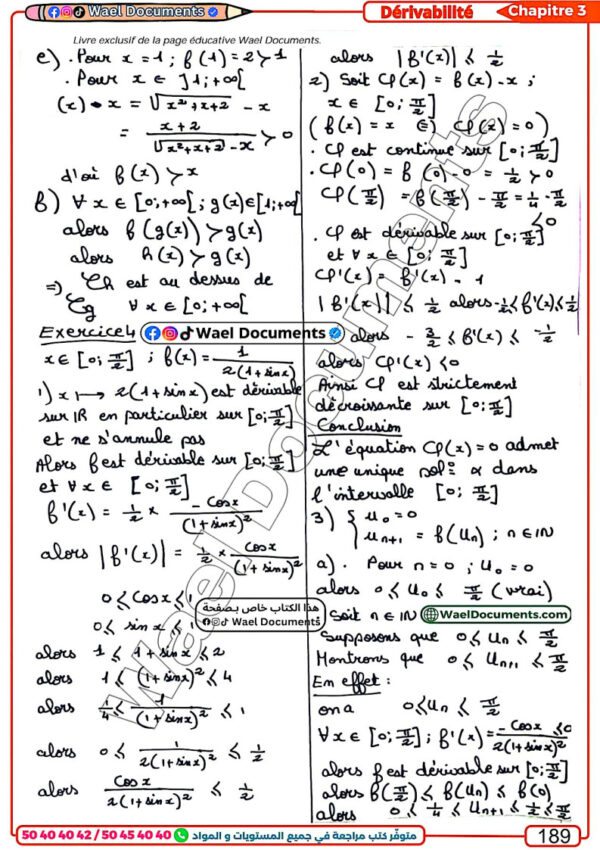 Wael Documents
Dérivabilité
Chapitre 3
Livre exclusif de la page éducative Wael Documents.
e) . Pour x = 1 ; f(1) = 2 > 1
. Pour x ∈ ]1; +∞[
(x) - x = √(x² + x + 2) - x
= (x + 2) / (√(x² + x + 2) - x) > 0
d'où f(x) > x
f) ∀ x ∈ [0; +∞[ ; g(x) ∈ [1; +∞[
alors f(g(x)) > g(x)
alors h(x) > g(x)
=> Ch est au dessus de
Cg ∀ x ∈ [0; +∞[
Exercice 4
Wael Documents
x ∈ [0; π/2] ; f(x) = 1 / (2(1 + sin x))
1) x ↦ 2(1 + sin x) est dérivable
sur IR en particulier sur [0; π/2]
et ne s'annule pas
Alors f est dérivable sur [0; π/2]
et ∀ x ∈ [0; π/2]
f'(x) = 1/2 × (- cos x) / (1 + sin x)²
alors |f'(x)| = 1/2 × cos x / (1 + sin x)²
0 ≤ cos x ≤ 1
0 ≤ sin x ≤ 1
alors 1 ≤ 1 + sin x ≤ 2
alors 1 ≤ (1 + sin x)² ≤ 4
alors 1/4 ≤ 1 / (1 + sin x)² ≤ 1
alors 0 ≤ 1 / (2(1 + sin x)²) ≤ 1/2
alors cos x / (2(1 + sin x)²) ≤ 1/2
alors |f'(x)| ≤ 1/2
2) Soit φ(x) = f(x) - x ;
x ∈ [0; π/2]
(f(x) = x ⇔ φ(x) = 0)
. φ est continue sur [0; π/2]
. φ(0) = f(0) - 0 = 1/2 > 0
φ(π/2) = f(π/2) - π/2 = 1/4 - π/2
< 0
. φ est dérivable sur [0; π/2]
et ∀ x ∈ [0; π/2]
φ'(x) = f'(x) - 1
|f'(x)| ≤ 1/2 alors -1/2 ≤ f'(x) ≤ 1/2
alors - 3/2 ≤ f'(x) ≤ -1/2
alors φ'(x) < 0
Ainsi φ est strictement
décroissante sur [0; π/2]
Conclusion
L'équation φ(x) = 0 admet
une unique sol° α dans
l'intervalle [0; π/2]
3) { u₀ = 0
uₙ₊₁ = f(uₙ) ; n ∈ IN
a) . Pour n = 0 ; u₀ = 0
alors 0 ≤ u₀ ≤ π/2 (vrai)
هذا الكتاب خاص بصفحة
Wael Documents
Soit n ∈ IN
WaelDocuments.com
Supposons que 0 ≤ uₙ ≤ π/2
Montrons que 0 ≤ uₙ₊₁ ≤ π/2
En effet :
on a 0 ≤ uₙ ≤ π/2
∀ x ∈ [0; π/2] ; f'(x) = - cos x / (2(1 + sin x)²) ≤ 0
alors f est dérivable sur [0; π/2]
alors f(π/2) ≤ f(uₙ) ≤ f(0)
alors 0 ≤ 1/4 ≤ uₙ₊₁ ≤ 1/2 ≤ π/2
Wael Documents
50 40 40 42 / 50 45 40 40
متوفّر كتب مراجعة في جميع المستويات و المواد
189